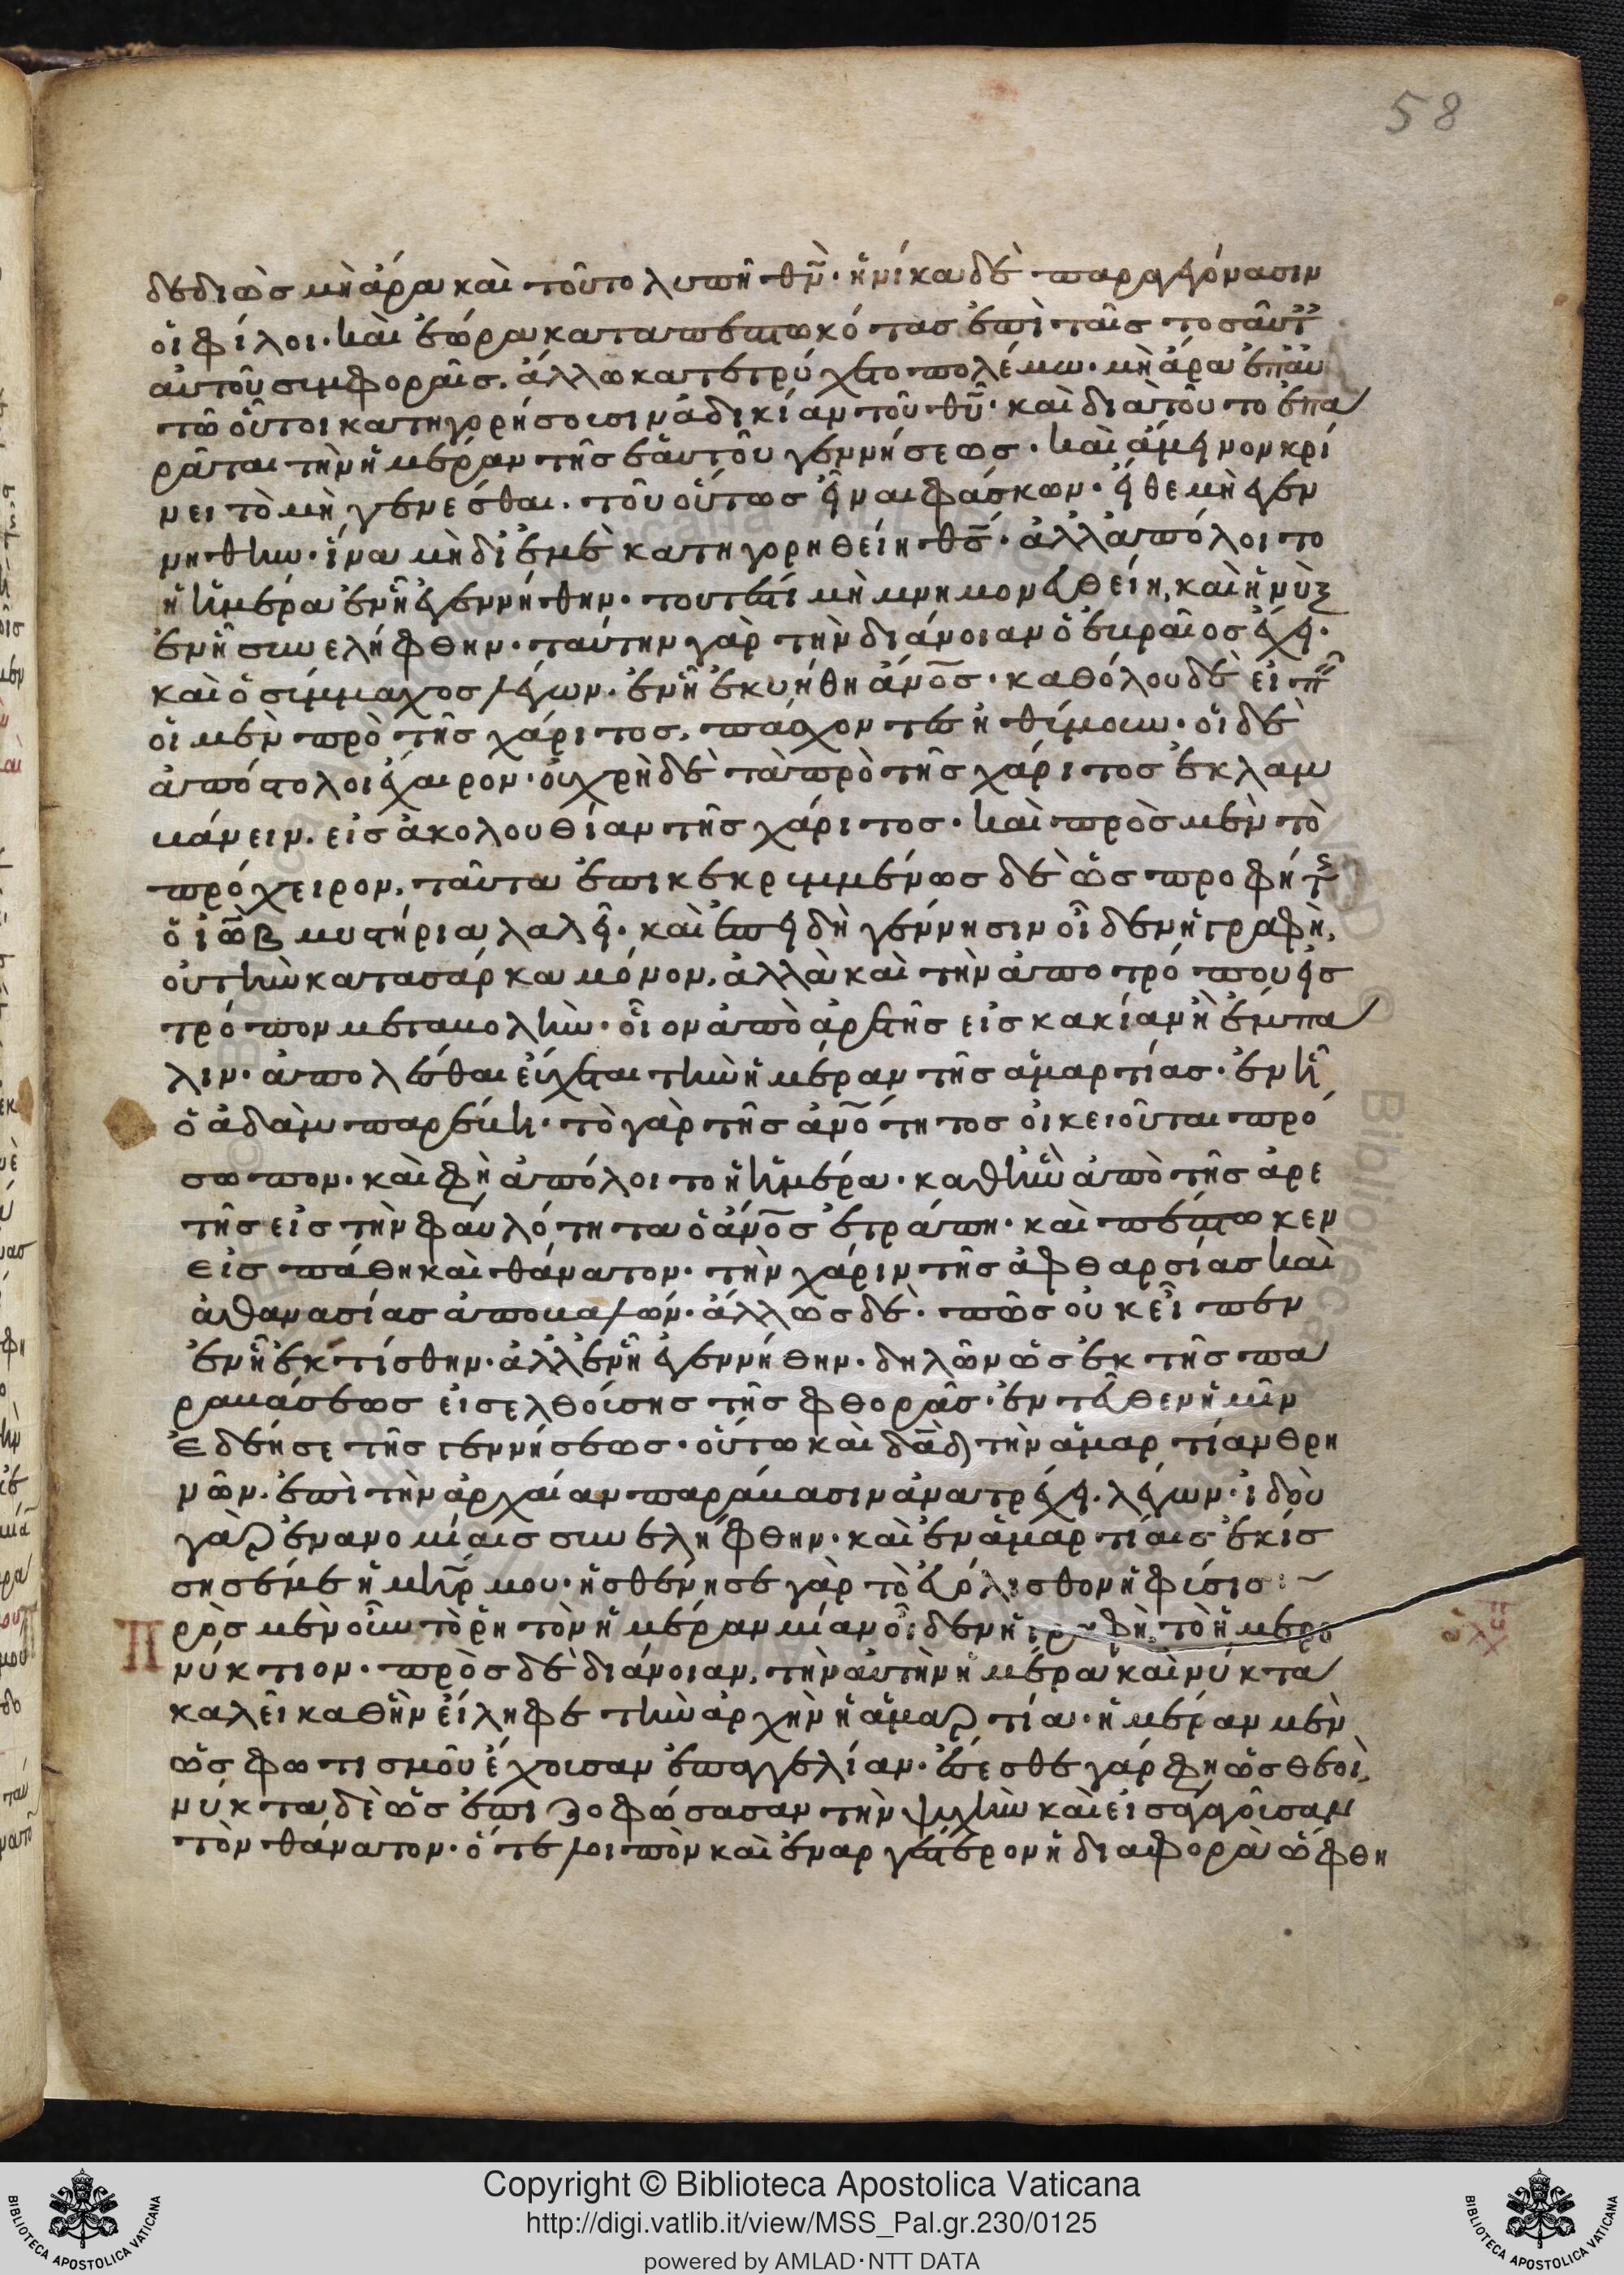 58
δεδιὼς μὴ ἄρα καὶ τοῦτο λυπῆ θν̄· ἡνίκα δὲ παρεγένασιν
οἱ φίλοι· καὶ ἑώρα καταπεπτωκότας ἐπὶ ταῖς τοσαύτ
αὐτοῦ συμφοραῖς. ἄλλω κατετρύχετο πολέμω· μὴ ἄρα ἐπ αὐ
τῶ οὗτοι κατηγορήσουσιν ἀδικίαν τοῦ θῡ· καὶ διὰ τοῦτο ἐπα
ρᾶται τὴν ἡμέραν τῆς ἑαυτοῦ γεννήσεως· καὶ ἄμεινον κρί
νει τὸ μὴ γενέσθαι. τοῦ οὕτως εἶναι φάσκων· εἴθε μὴ ἐγεν
νήθην· ἵνα μὴ δι ἐμὲ κατηγορηθείη θς̄· ἀλλ ἀπόλοιτο
ἡ ἡμέρα ἐν ἧ ἐγεννήθην· τουτέστι μὴ μνημονευθείη, καὶ ἡ νὺξ
ἐν ἧ συνελήφθην· ταύτην γὰρ τὴν διάνοιαν ὁ ἑβραῖος ἔχει·
καὶ ὁ σύμμαχος λέγων· ἐν ἧ ἐκυήθη ἄνο̄ς· καθόλου δὲ εἰπεῖν
οἱ μὲν πρὸ τῆς χάριτος, πάσχοντες ἠθύμουν· οἱ δὲ
ἀπόστολοι ἔχαιρον· οὐ χρὴ δὲ τὰ πρὸ τῆς χάριτος ἐκλαμ
βάνειν. εἰς ἀκολουθίαν τῆς χάριτος· καὶ πρὸς μὲν τὸ
πρόχειρον, ταῦτα ἐπικεκριμμένως δὲ ὡς προφήτης
ὁ ἰὼβ μυστήρια λαλεῖ· καὶ ἐπειδὴ γέννησιν οἶδεν ἡ γραφὴ,
οὐ τὴν κατα σάρκα μόνον, ἀλλὰ καὶ τὴν ἀπο τρόπου εἰς
τρόπον μεταβολὴν· οἷον ἀπὸ ἀρετῆς εἰς κακίαν ἢ ἔμπα
λιν· ἀπολέσθαι εὔχεται τὴν ἡμέραν τῆς ἁμαρτίας· ἐν ἧ
ὁ ἀδὰμ παρέβη· τὸ γὰρ τῆς ἀνο̄τητος οἰκειοῦται πρό
σωπον· καὶ φὴ ἀπόλοιτο ἡ ἡμέρα· καθ ἣν ἀπὸ τῆς ἀρε
τῆς εἰς τὴν φαυλότητα ὁ ἄνο̄ς ἐτράπη· καὶ πέπτωκεν
εἰς πάθη καὶ θάνατον· τὴν χάριν τῆς ἀφθαρσίας καὶ
ἀθανασίας ἀποβαλών· ἄλλως δὲ· πῶς οὐκ εἶπεν
ἐν ἧ ἐκτίσθην· ἀλλ ἐν ἧ ἐγεννήθην· δηλῶν ὡς ἐκ τῆς πα
ραβάσεως εἰσελθούσης τῆς φθορᾶς· ἐντεῦθεν ἡμῖν
ἐδέησε τῆς γεννήσεως· οὕτω καὶ δᾱδ τὴν ἁμαρτίαν θρη
νῶν· ἐπὶ τὴν ἀρχαίαν παράβασιν ἀνατρέχει. λέγων· ἰδοὺ
γὰρ ἐν ἀνομίαις συνελήφθην· καὶ ἐν ἁμαρτίαις ἐκίσ
σησέ με ἡ μη̄ρ μου· ἠσθένησε γὰρ τὸ εὐόλισθον ἡ φύσις:~
Πρὸς μὲν οὖν τὸ ῥητὸν ἡμέραν μίαν οἶδεν ἡ γραφὴ, τὸ ἡμερο
νύκτιον· πρὸς δὲ διάνοιαν, τὴν αὐτὴν ἡμέρα καὶ νύκτα
καλεῖ καθ ἣν εἴληφε τὴν ἀρχὴν ἡ ἁμαρτία· ἡμέραν μὲν
ὡς φωτισμοῦ ἔχουσαν ἐπαγγελίαν· ἔσεσθε γάρ φη ὡς θεοὶ,
νύκτα δὲ ὡς ἐπιζοφώσασαν τὴν ψυχὴν καὶ εἰσαγαγοῦσαν
τὸν θάνατον· ὅ τε λοιπὸν καὶ ἐναργέστερον ἡ διαφορὰ ὤφθη
Copyright © Biblioteca Apostolica Vaticana
http://digi.vatlib.it/view/MSS_Pal.gr.230/0125
powered by AMLAD·NTT DATA